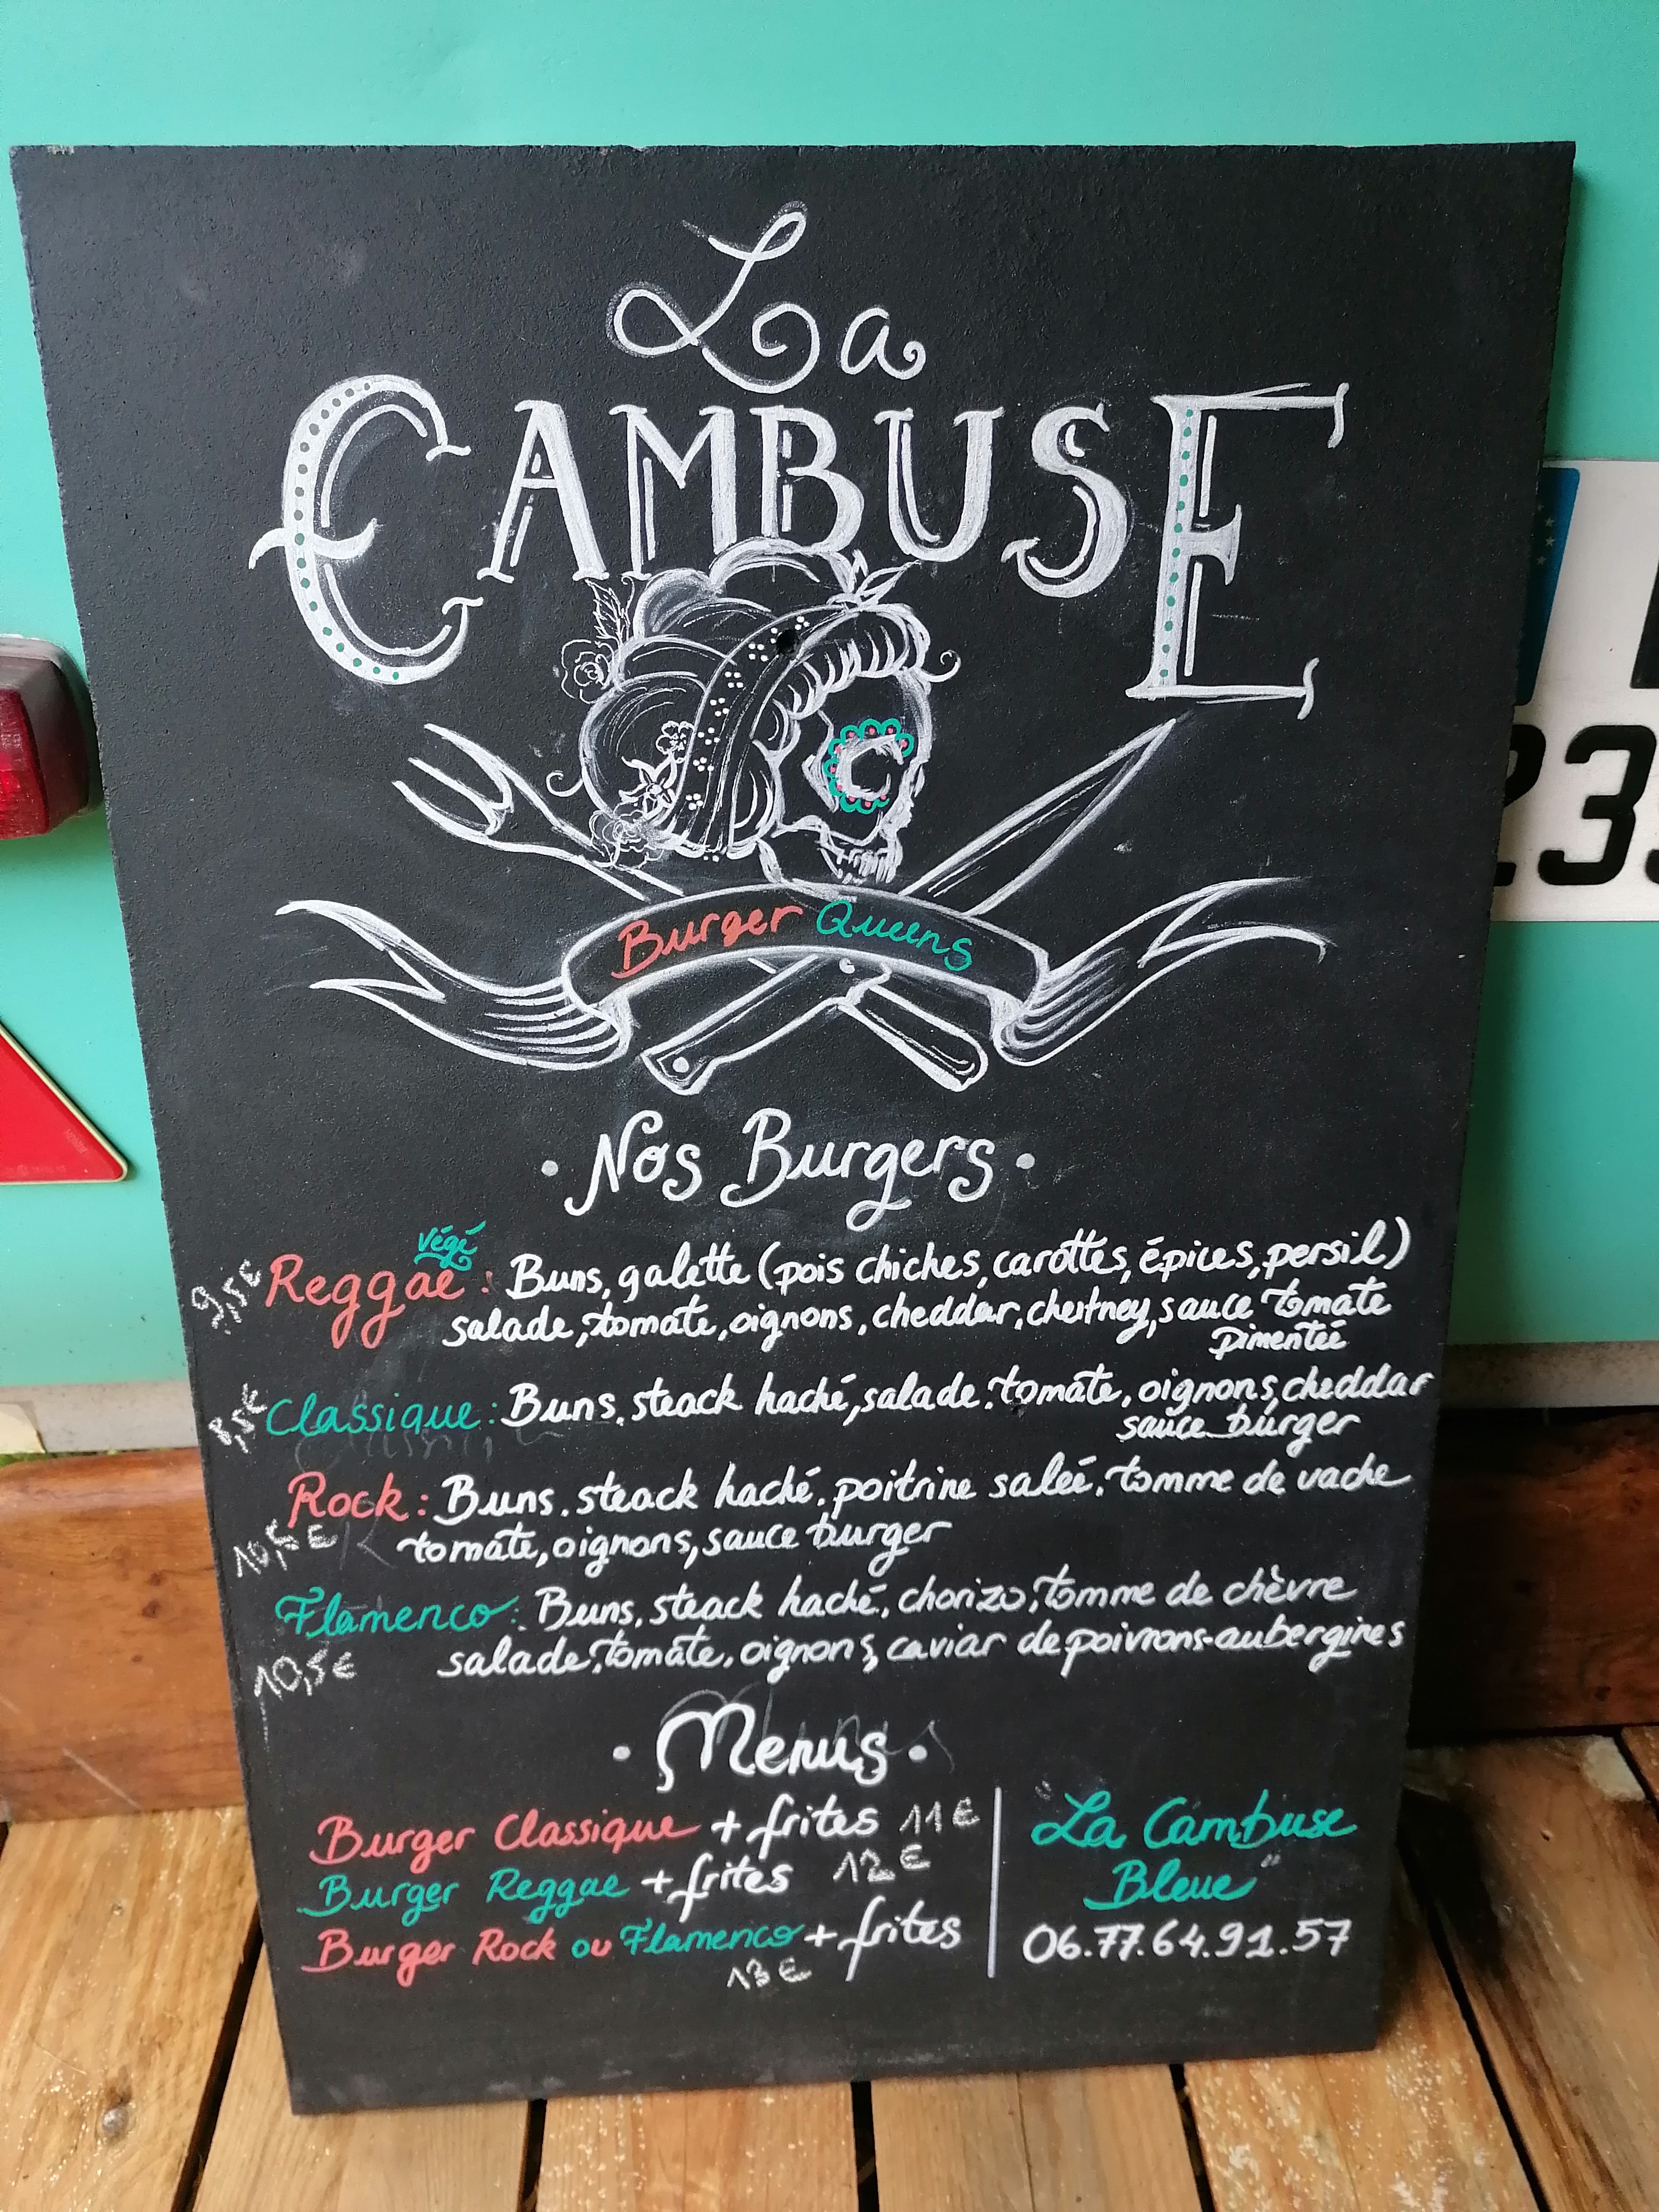 La
CAMBUSE
Burger Queens
• Nos Burgers •
végé
9,5€ Reggae : Buns, galette (pois chiches, carottes, épices, persil)
salade, tomate, oignons, cheddar, chutney, sauce tomate
pimentée
8,5€ Classique : Buns, steack haché, salade, tomate, oignons, cheddar
sauce burger
Rock : Buns, steack haché, poitrine salée, tomme de vache
10,5€ tomate, oignons, sauce burger
Flamenco : Buns, steack haché, chorizo, tomme de chèvre
10,5€ salade, tomate, oignons, caviar de poivrons-aubergines
• Menus •
Burger Classique + frites 11€
Burger Reggae + frites 12€
Burger Rock ou Flamenco + frites
13€
"La Cambuse
Bleue"
06.77.64.91.57
23